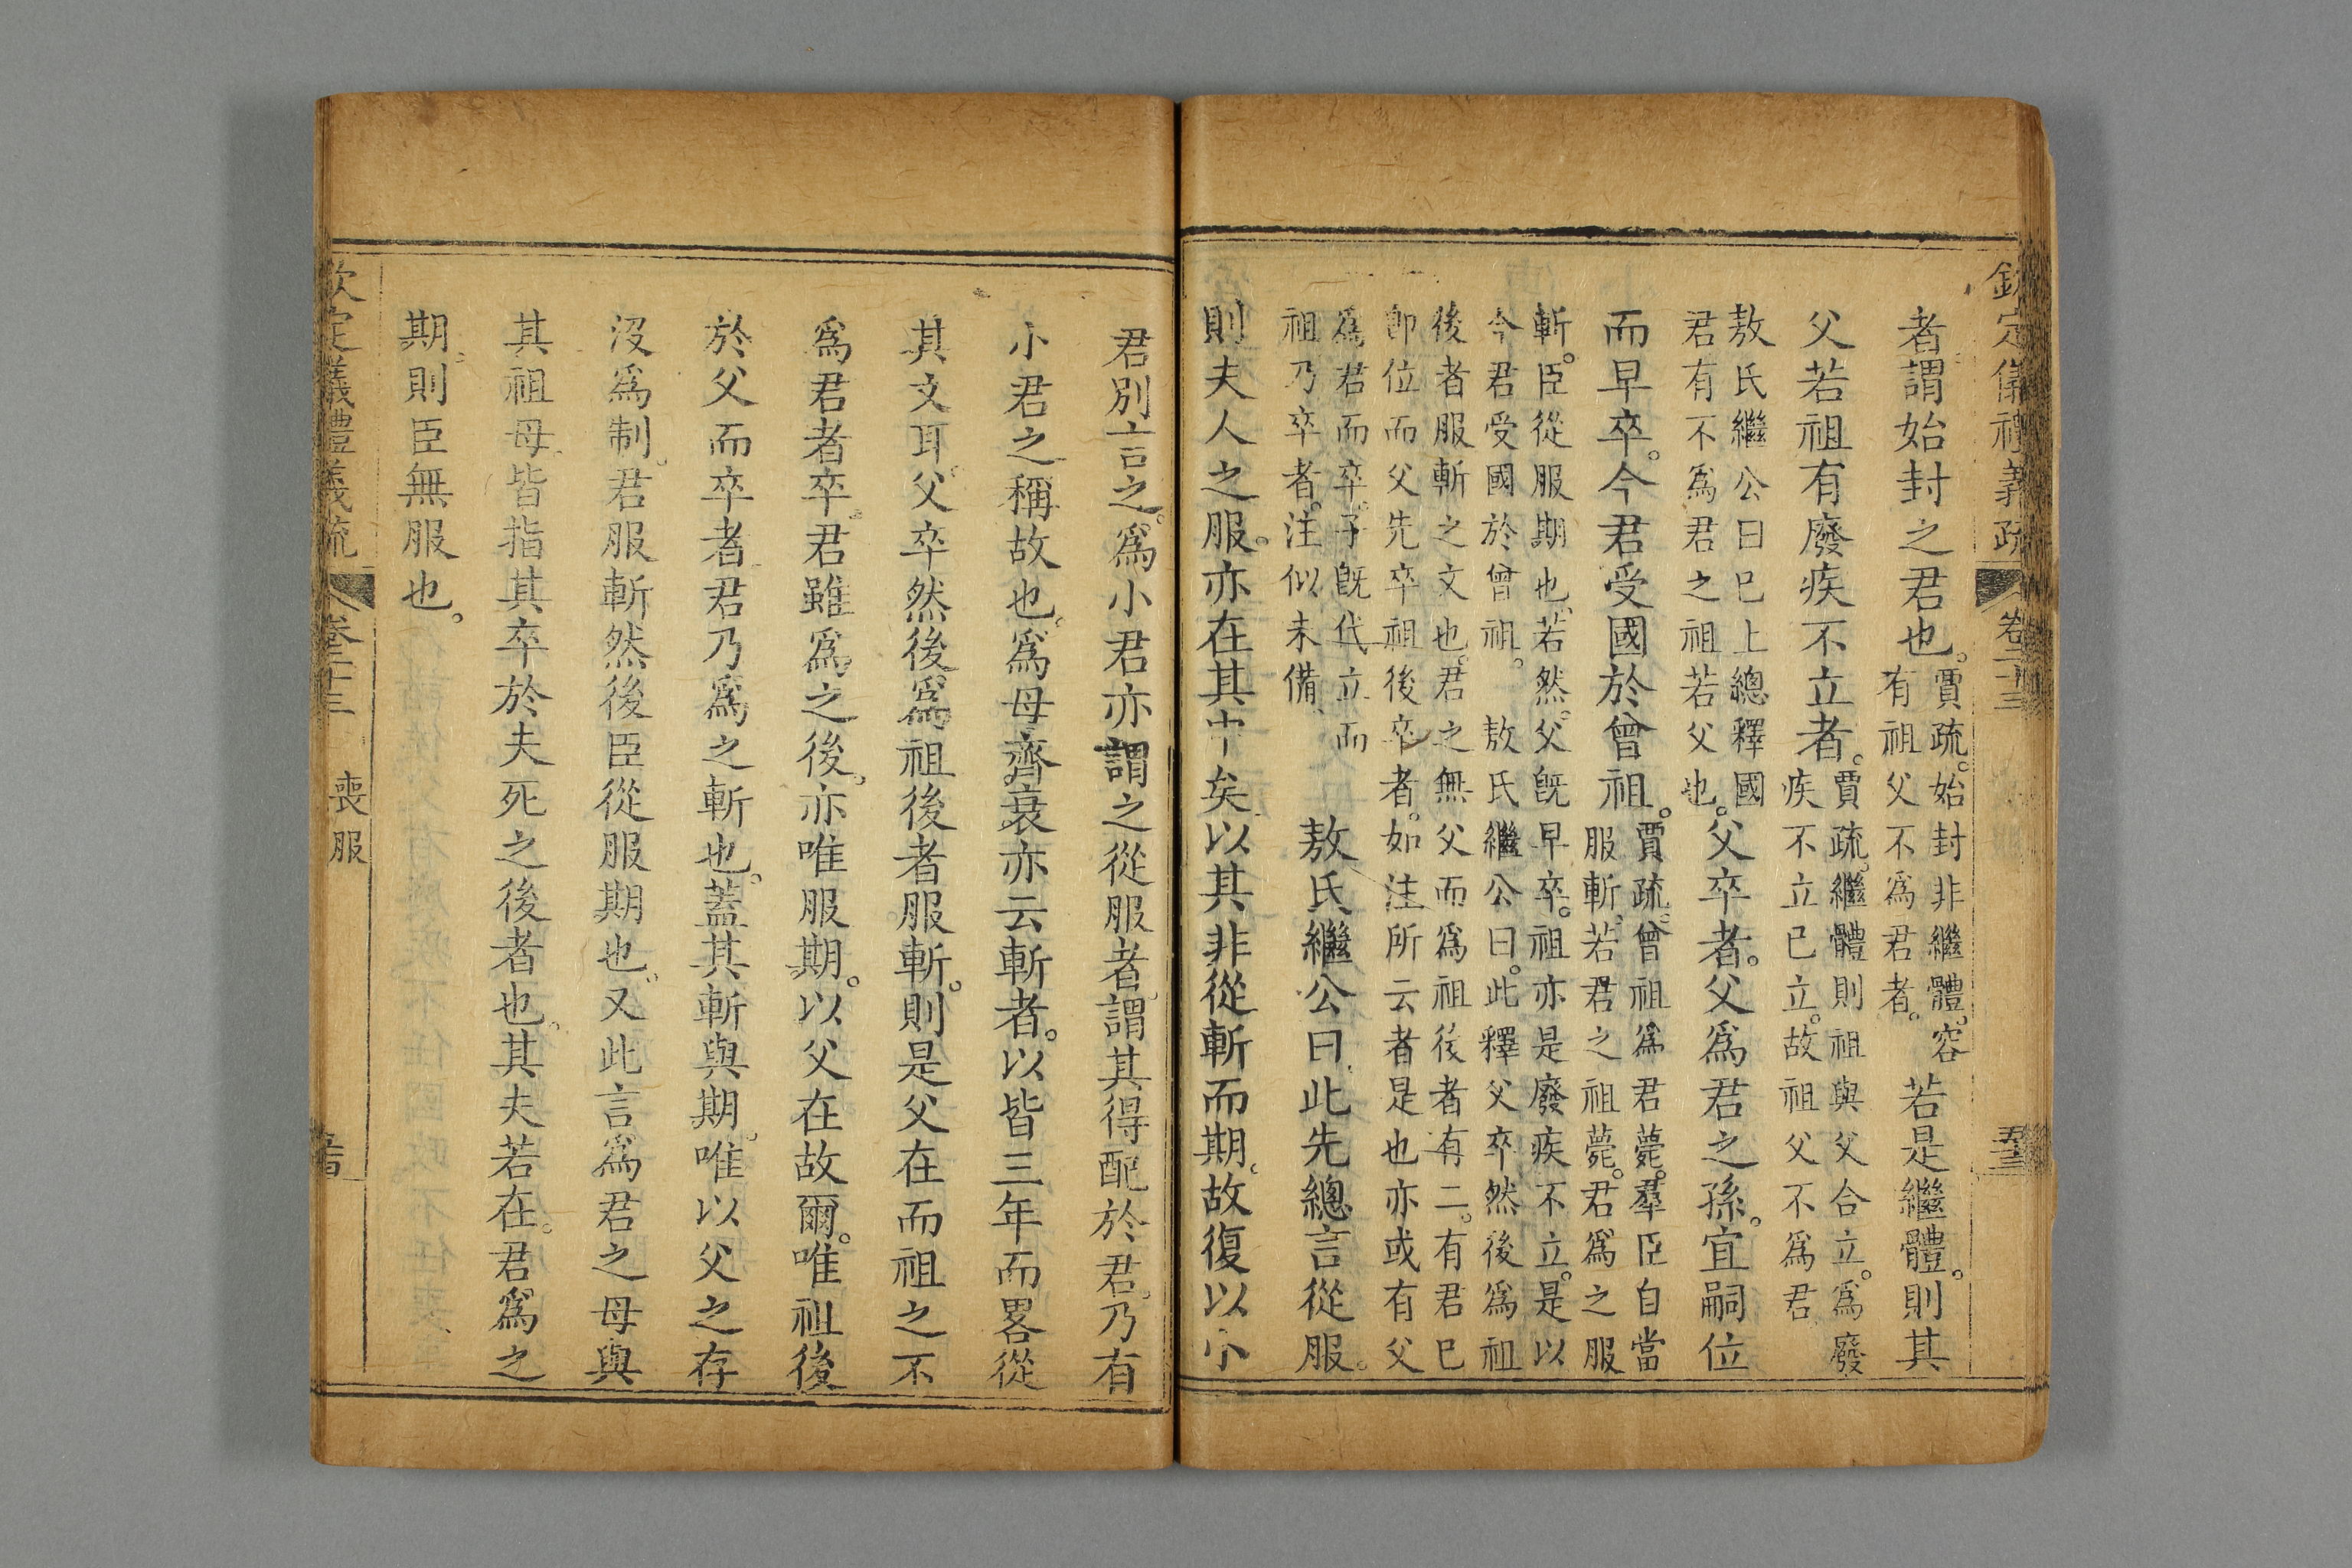 欽定儀禮義疏 卷二十三
者。謂始封之君也。賈疏。始封非繼體。容有祖父不爲君者。若是繼體。則其
父若祖有廢疾不立者。賈疏。繼體則祖與父合立。爲廢疾不立。已立。故祖父不爲君
敖氏繼公曰已上總釋國君有不爲君之祖若父也。父卒者。父爲君之孫。宜嗣位
而早卒。今君受國於曾祖。賈疏。曾祖爲君薨。羣臣自當服斬。若君之祖薨。君爲之服
斬。臣從服期也。若然。父旣早卒。祖亦是廢疾不立。是以
今君受國於曾祖。 敖氏繼公曰。此釋父卒然後爲祖
後者服斬之文也。君之無父而爲祖後者有二。有君已
卽位而父先卒祖後卒者。如注所云者是也亦或有父
爲君而卒。子旣代立而
祖乃卒者。注似未備、
敖氏繼公曰此先總言從服。
則夫人之服。亦在其中矣以其非從斬而期。故復以小
君別言之。爲小君亦謂之從服者。謂其得配於君。乃有
小君之稱故也。爲母齊衰亦云斬者。以皆三年而畧從
其文耳。父卒然後爲祖後者服斬。則是父在而祖之不
爲君者卒。君雖爲之後。亦唯服期。以父在故爾。唯祖後
於父而卒者君乃爲之斬也。蓋其斬與期。唯以父之存
沒爲制。君服斬然後臣從服期也。又此言爲君之母與
其祖母。皆指其卒於夫死之後者也。其夫若在。君爲之
期。則臣無服也。
欽定儀禮義疏 卷二十三 喪服